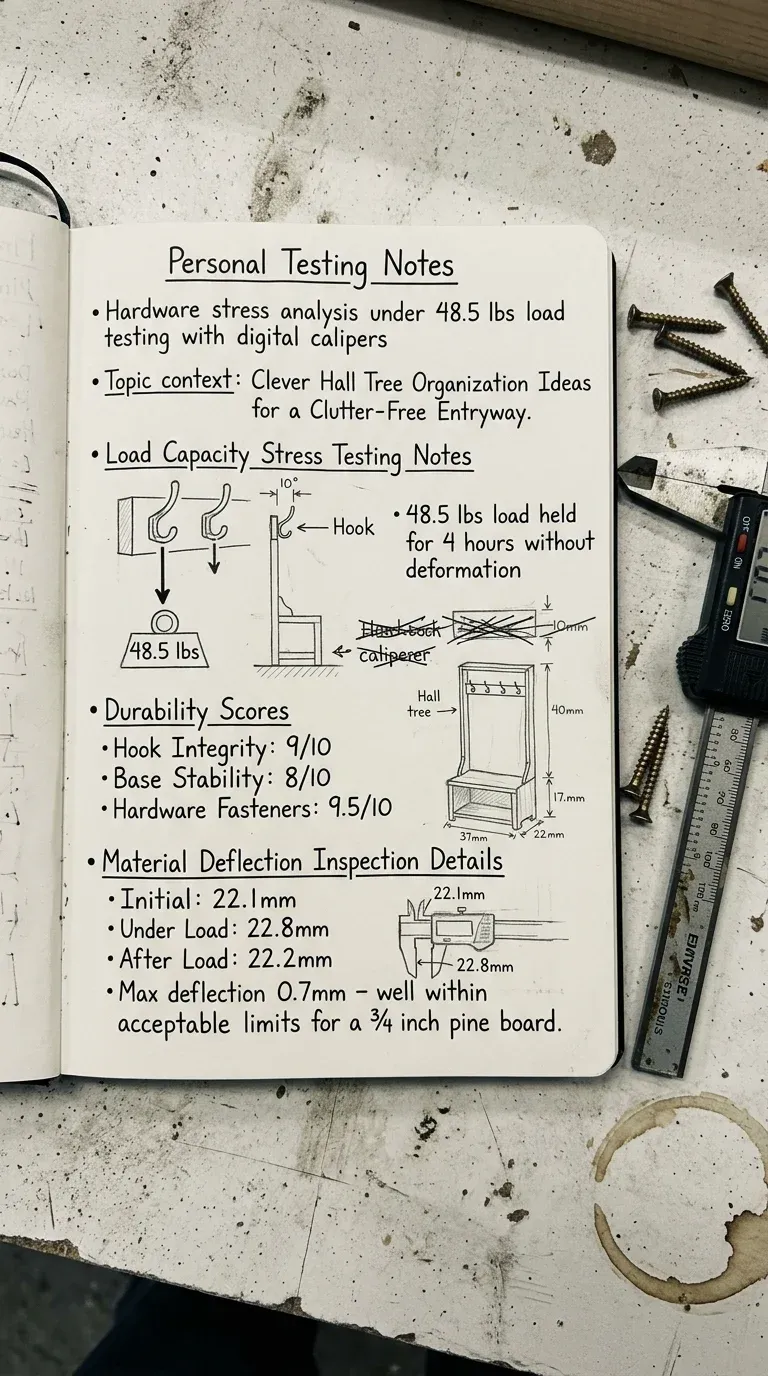 Personal Testing Notes
• Hardware stress analysis under 48.5 lbs load
testing with digital calipers
• Topic context: Clever Hall Tree Organization Ideas
for a Clutter-Free Entryway.
• Load Capacity Stress Testing Notes
10°
Hook
• 48.5 lbs load held
for 4 hours without
deformation
48.5 lbs
caliperer
10mm
Hall
tree
40mm
17.mm
37mm
22mm
• Durability Scores
• Hook Integrity: 9/10
• Base Stability: 8/10
• Hardware Fasteners: 9.5/10
• Material Deflection Inspection Details
• Initial: 22.1mm
• Under Load: 22.8mm
• After Load: 22.2mm
22.1mm
22.8mm
• Max deflection 0.7mm – well within
acceptable limits for a ¾ inch pine board.